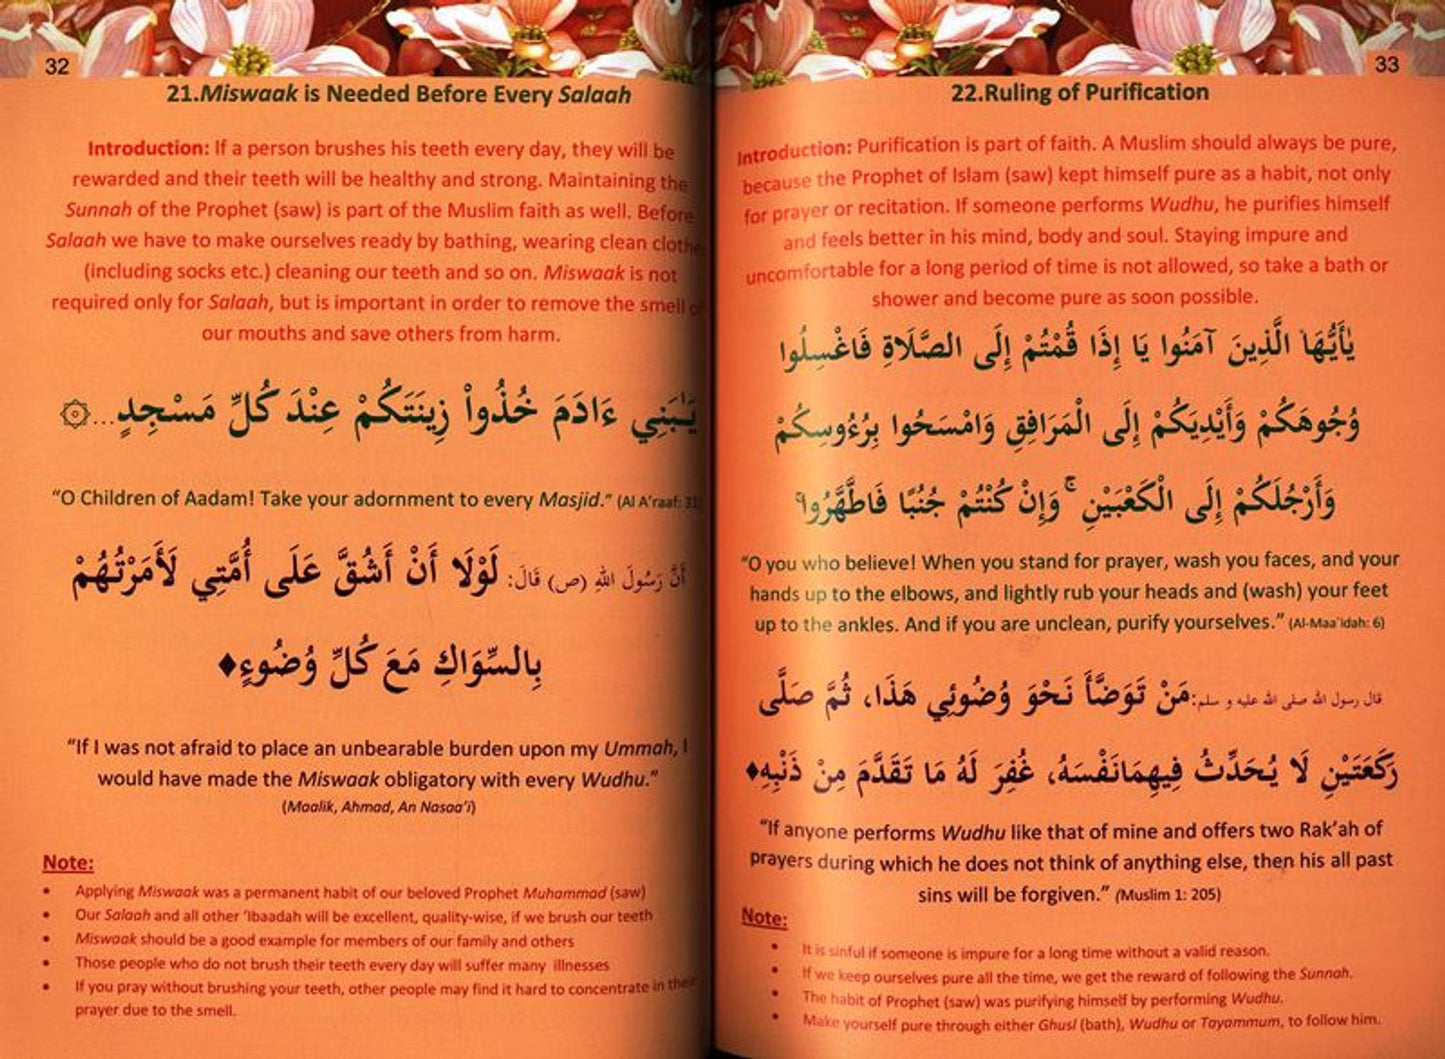 32
21.Miswaak is Needed Before Every Salaah
Introduction: If a person brushes his teeth every day, they will be
rewarded and their teeth will be healthy and strong. Maintaining the
Sunnah of the Prophet (saw) is part of the Muslim faith as well. Before
Salaah we have to make ourselves ready by bathing, wearing clean clothes
(including socks etc.) cleaning our teeth and so on. Miswaak is not
required only for Salaah, but is important in order to remove the smell of
our mouths and save others from harm.
يَـٰبَنِي ءَادَمَ خُذُواْ زِينَتَكُمْ عِنْدَ كُلِّ مَسْجِدٍ...۞
“O Children of Aadam! Take your adornment to every Masjid.” (Al A’raaf: 31)
أَنَّ رَسُولَ اللهِ (ص) قَالَ: لَوْلَا أَنْ أَشُقَّ عَلَى أُمَّتِي لَأَمَرْتُهُمْ
بِالسِّوَاكِ مَعَ كُلِّ وُضُوءٍ♦
“If I was not afraid to place an unbearable burden upon my Ummah, I
would have made the Miswaak obligatory with every Wudhu.”
(Maalik, Ahmad, An Nasaa’i)
Note:
• Applying Miswaak was a permanent habit of our beloved Prophet Muhammad (saw)
• Our Salaah and all other ‘Ibaadah will be excellent, quality-wise, if we brush our teeth
• Miswaak should be a good example for members of our family and others
• Those people who do not brush their teeth every day will suffer many illnesses
• If you pray without brushing your teeth, other people may find it hard to concentrate in their
prayer due to the smell.
33
22.Ruling of Purification
Introduction: Purification is part of faith. A Muslim should always be pure,
because the Prophet of Islam (saw) kept himself pure as a habit, not only
for prayer or recitation. If someone performs Wudhu, he purifies himself
and feels better in his mind, body and soul. Staying impure and
uncomfortable for a long period of time is not allowed, so take a bath or
shower and become pure as soon possible.
يٰأَيُّهَا الَّذِينَ آمَنُوا يَا إِذَا قُمْتُمْ إِلَى الصَّلَاةِ فَاغْسِلُوا
وُجُوهَكُمْ وَأَيْدِيَكُمْ إِلَى الْمَرَافِقِ وَامْسَحُوا بِرُءُوسِكُمْ
وَأَرْجُلَكُمْ إِلَى الْكَعْبَيْنِ ۚ وَإِنْ كُنْتُمْ جُنُبًا فَاطَّهَّرُوا ۚ
“O you who believe! When you stand for prayer, wash you faces, and your
hands up to the elbows, and lightly rub your heads and (wash) your feet
up to the ankles. And if you are unclean, purify yourselves.” (Al-Maa`idah: 6)
قال رسول الله صلى الله عليه و سلم:مَنْ تَوَضَّأَ نَحْوَ وُضُوئِي هَذَا، ثُمَّ صَلَّى
رَكَعَتَيْنِ لَا يُحَدِّثُ فِيهِمَانَفْسَهُ، غُفِرَ لَهُ مَا تَقَدَّمَ مِنْ ذَنْبِهِ♦
“If anyone performs Wudhu like that of mine and offers two Rak’ah of
prayers during which he does not think of anything else, then his all past
sins will be forgiven.” (Muslim 1: 205)
Note:
• It is sinful if someone is impure for a long time without a valid reason.
• If we keep ourselves pure all the time, we get the reward of following the Sunnah.
• The habit of Prophet (saw) was purifying himself by performing Wudhu.
• Make yourself pure through either Ghusl (bath), Wudhu or Tayammum, to follow him.